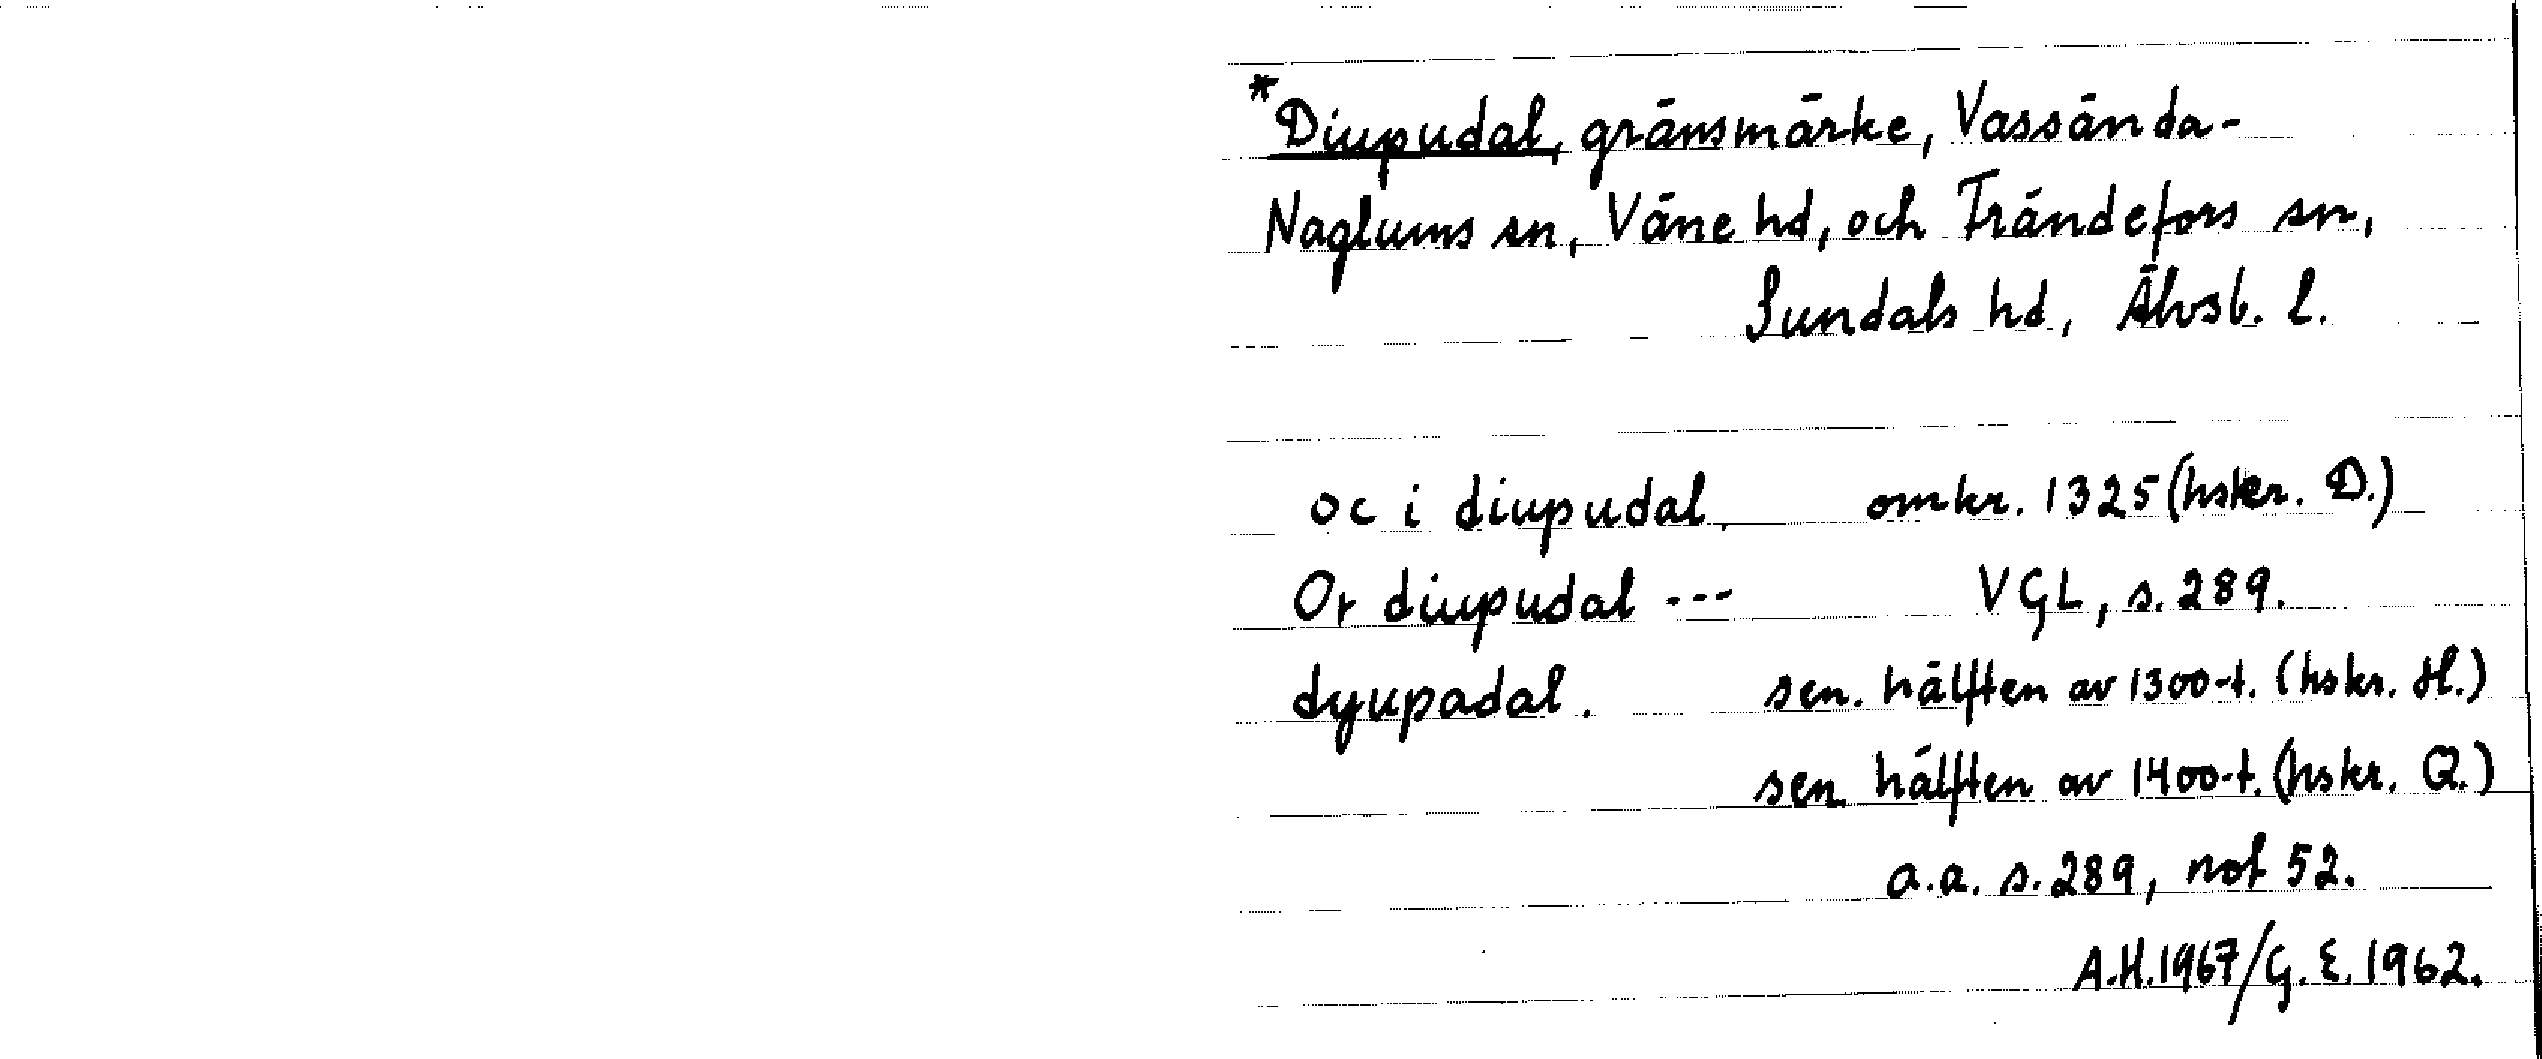 *Diupudal, gränsmärke, Vassända-
Naglums sn, Väne hd, och Frändefors sn,
Sundals hd, Älvsb. l.
oc i diupudal. omkr. 1325 (hskr. D.)
Or diupudal --- VGL, s. 289.
dyupadal. sen. hälften av 1300-t. (hskr. H.)
sen hälften av 1400-t. (hskr. Q.)
a.a. s. 289, not 52.
A.H.1967/G.E. 1962.